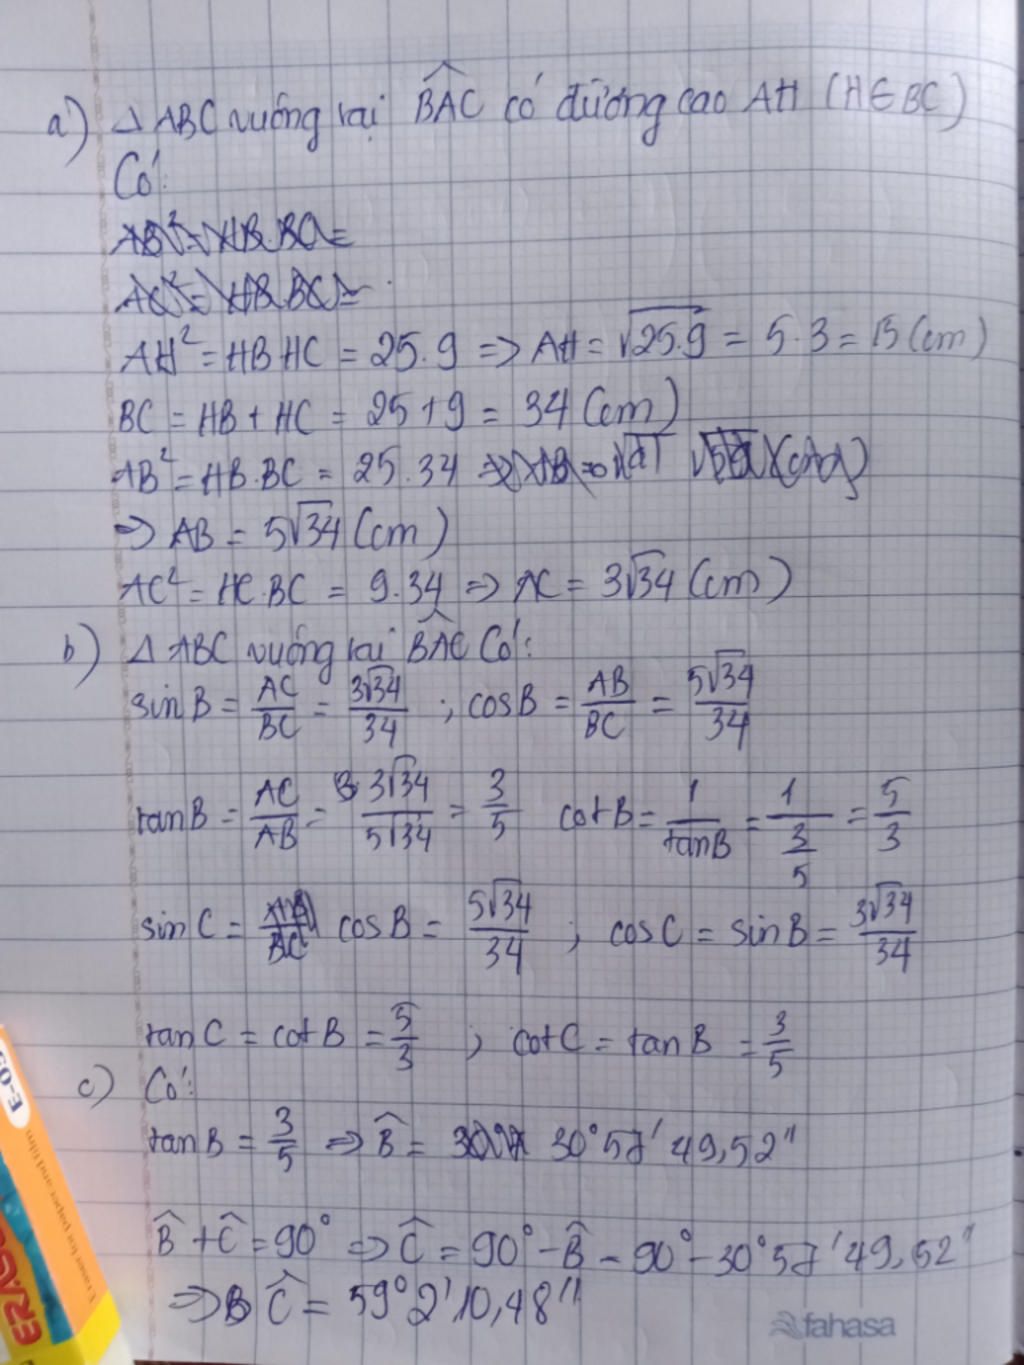 a) Δ ABC vuông tại \widehat{BAC} có đường cao AH (H ∈ BC)
Có:
AB² = HB.BC =
AC² = HB.BC =
AH² = HB HC = 25.9 => AH = √25.9 = 5.3 = 15 (cm)
BC = HB + HC = 25 + 9 = 34 (cm)
AB² = HB.BC = 25.34
=> AB = 5√34 (cm)
AC² = HC.BC = 9.34 => AC = 3√34 (cm)
b) Δ ABC vuông tại \widehat{BAC} Có:
sin B = AC/BC = 3√34/34 ; cosB = AB/BC = 5√34/34
tanB = AC/AB = 3√34/5√34 = 3/5 cotB = 1/tanB = 1/(3/5) = 5/3
sin C = cosB = 5√34/34 ; cosC = sinB = 3√34/34
tanC = cotB = 5/3 ; cotC = tanB = 3/5
c) Có:
tanB = 3/5 => \widehat{B} = 30°57'49,52"
\widehat{B} + \widehat{C} = 90° => \widehat{C} = 90° - \widehat{B} = 90° - 30°57'49,52"
=> \widehat{C} = 59°2'10,48"
fahasa
E-09
Eraser for paper and film
ERAS